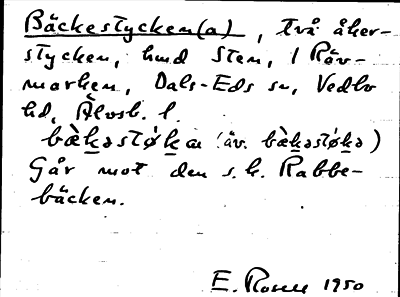 Bäckestycken(a), två åker-
stycken, hmd Sten, i Räv-
marken, Dals-Eds sn, Vedbo
hd, Älvsb. l.
bæ̀kəstǿkα (äv. bæ̀kəstǿkə)
Går mot den s. k. Rabbe-
bäcken.
E. Rosell 1950